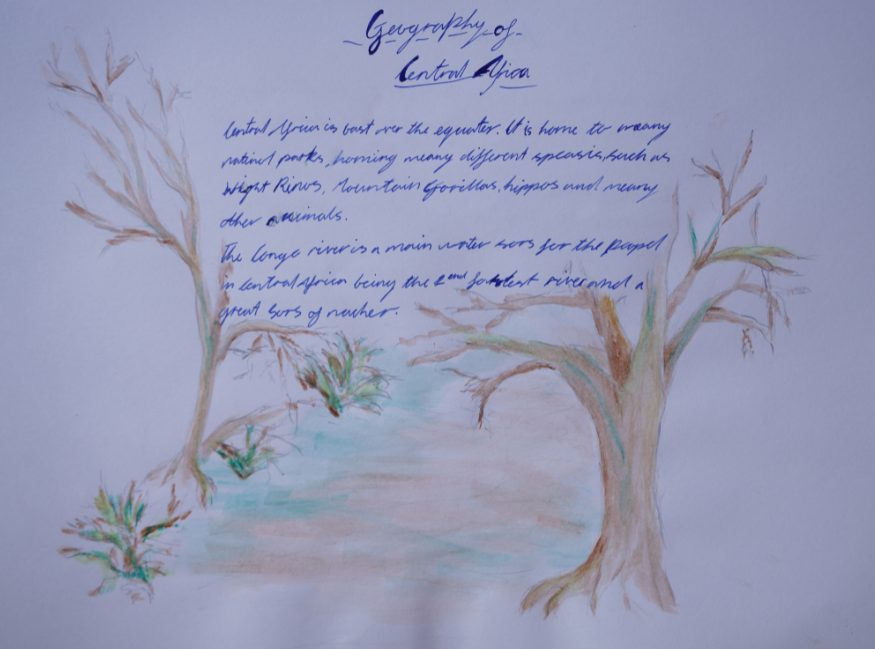 Geography of
Central Africa
Central Africa is bast over the equater. It is home to meany
natinel parks, homing meany different speasis, such as
Wight Rinos, Mountain Gorillas, hippos and meany
other animals.
The Congo river is a main water sors for the
in Central Africa being the 2nd river and a
great sors of